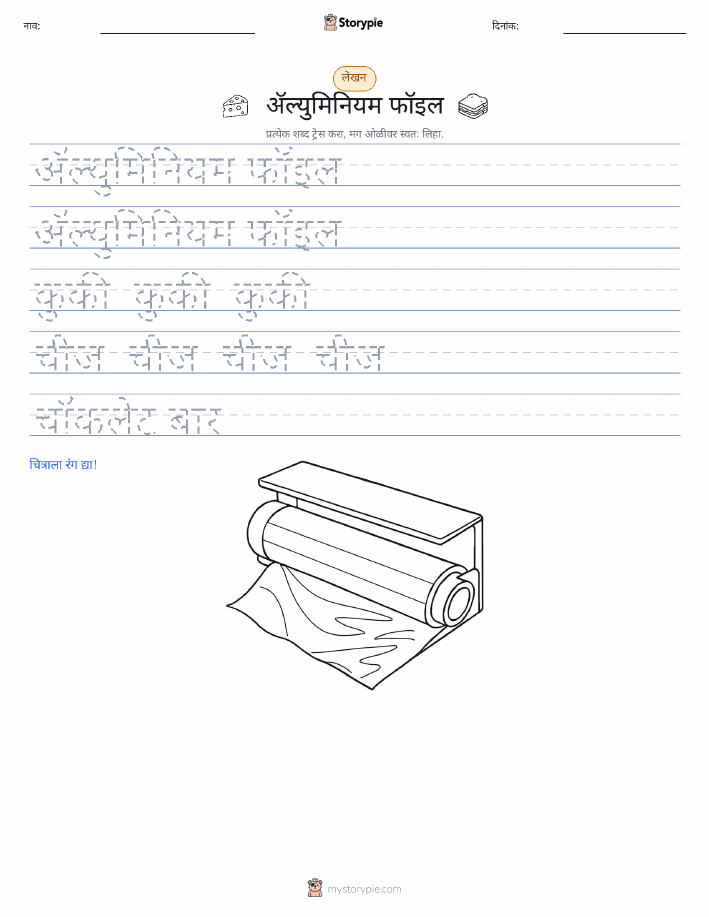 नाव:
Storypie
दिनांक:
लेखन
ॲल्युमिनियम फॉइल
प्रत्येक शब्द ट्रेस करा, मग ओळीवर स्वतः लिहा.
ॲल्युमिनियम फॉइल
ॲल्युमिनियम फॉइल
कुकी कुकी कुकी
चीज चीज चीज चीज
चॉकलेट बार
चित्राला रंग द्या!
mystorypie.com